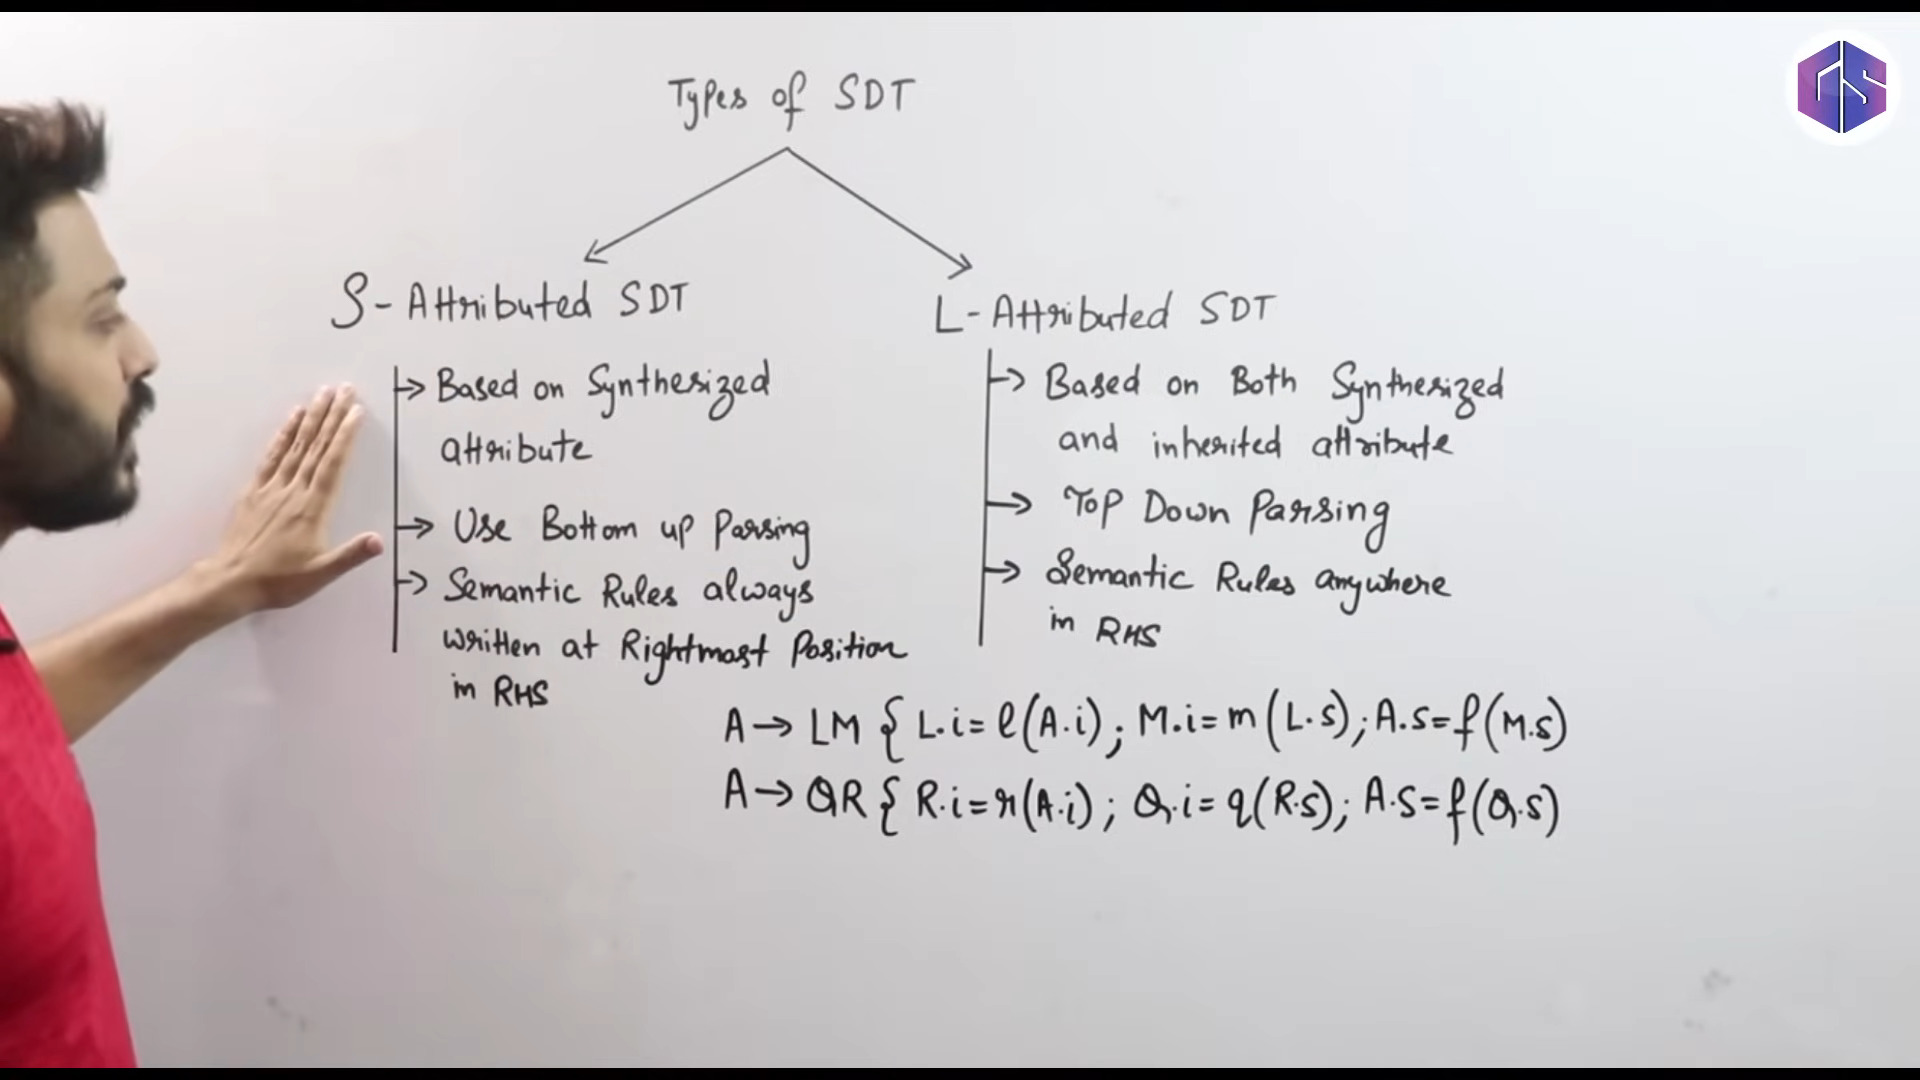 Types of SDT
S-Attributed SDT
→ Based on Synthesized
attribute
→ Use Bottom up Parsing
→ Semantic Rules always
written at Rightmost Position
in RHS
L-Attributed SDT
→ Based on Both Synthesized
and inherited attribute
→ Top Down Parsing
→ Semantic Rules anywhere
in RHS
A → LM { L.i = l(A.i); M.i = m(L.s); A.s = f(M.s)
A → QR { R.i = r(A.i); Q.i = q(R.s); A.s = f(Q.s)